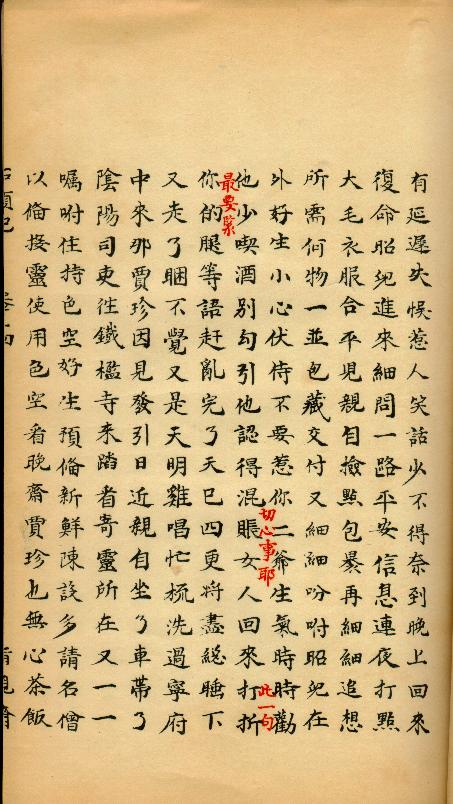 有延遲失悮惹人笑話少不得奈到晚上回來
復命昭兒進來細問一路平安信息連夜打點
大毛衣服合平兒親自撿點包裹再細細追想
所需何物一並包藏交付又細細吩咐昭兒在
外好生小心伏侍不要惹你二爺生氣時時勸
他少喫酒別勾引他認得混賬女人回來打折
切心事耶
此一句
最要緊
你的腿等語赶亂完了天已四更將盡總睡下
又走了睏不覺又是天明雞唱忙梳洗過寧府
中來那賈珍因見發引日近親自坐了車帶了
陰陽司吏往鐵檻寺來踏看寄靈所在又一一
囑咐住持色空好生預偹新鮮陳設多請名僧
以偹接靈使用色空看晚齋賈珍也無心茶飯